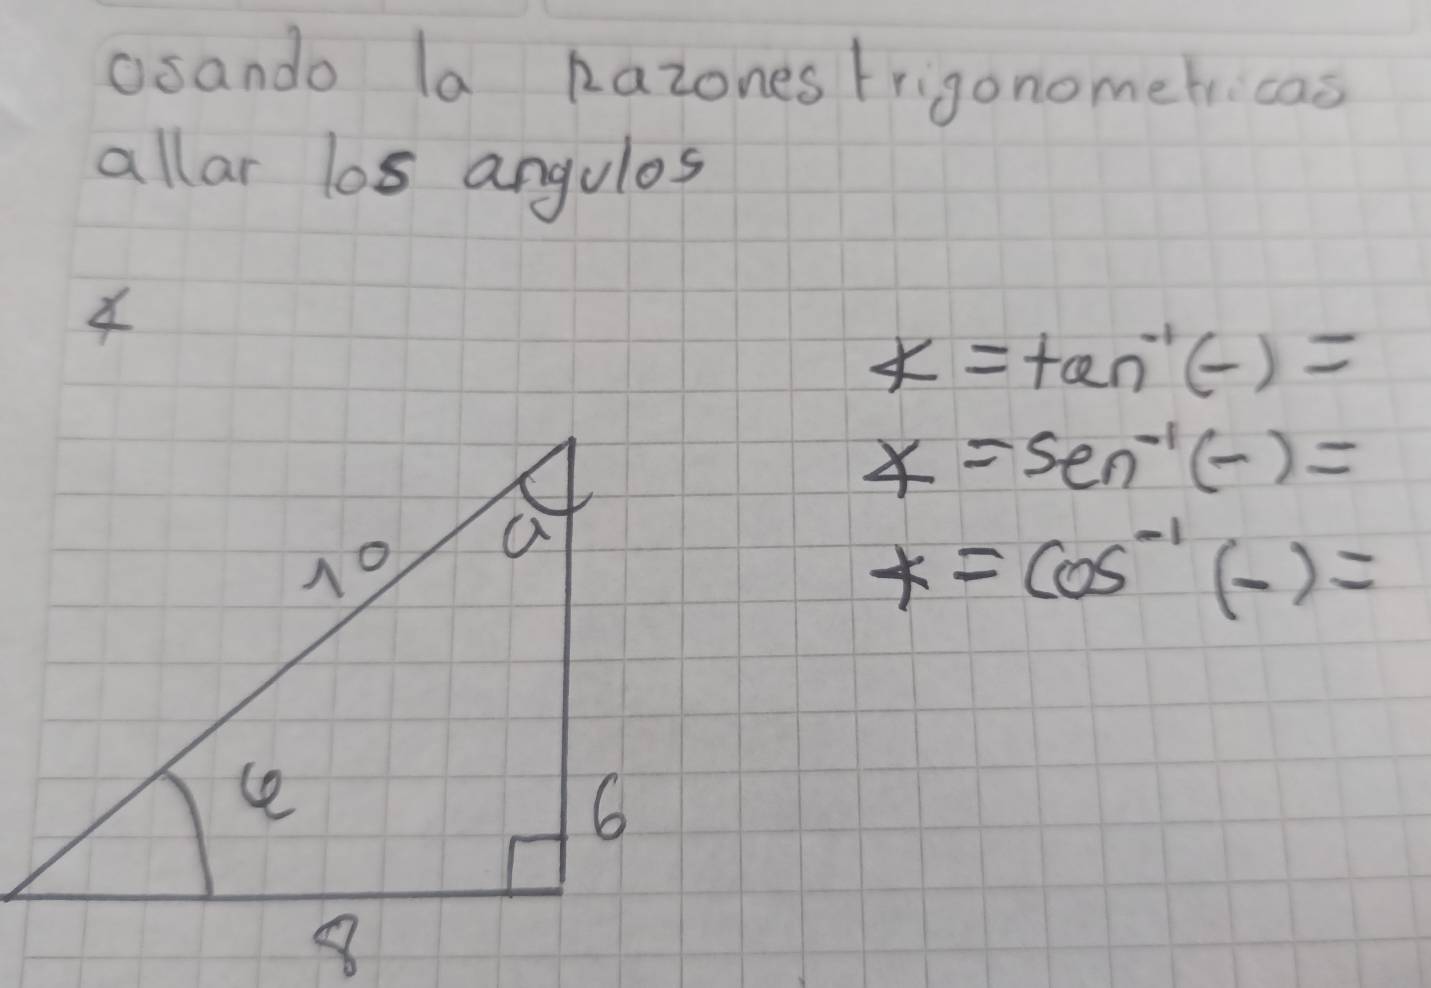 osando la Razones trigonometricas
allar los angulos
∡
∡ = tan⁻¹ (-) =
∡ = Sen⁻¹ (-) =
∡ = Cos⁻¹ (-) =
10
a
φ
6
8